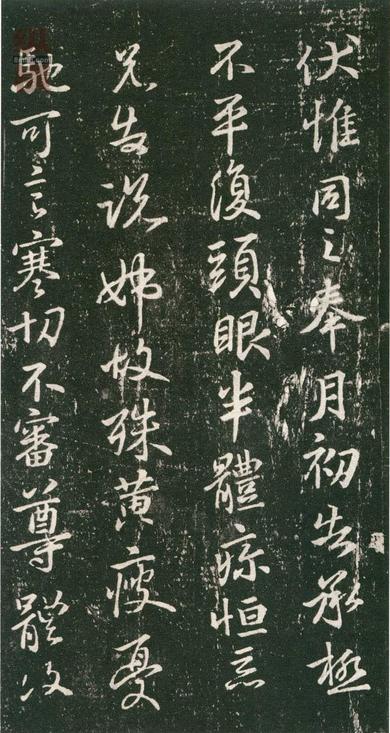 伏惟同之奉月初告承極
不平復頭眼半體疼恒
兄告說姊故殊黃瘦憂
馳可言寒切不審尊體復